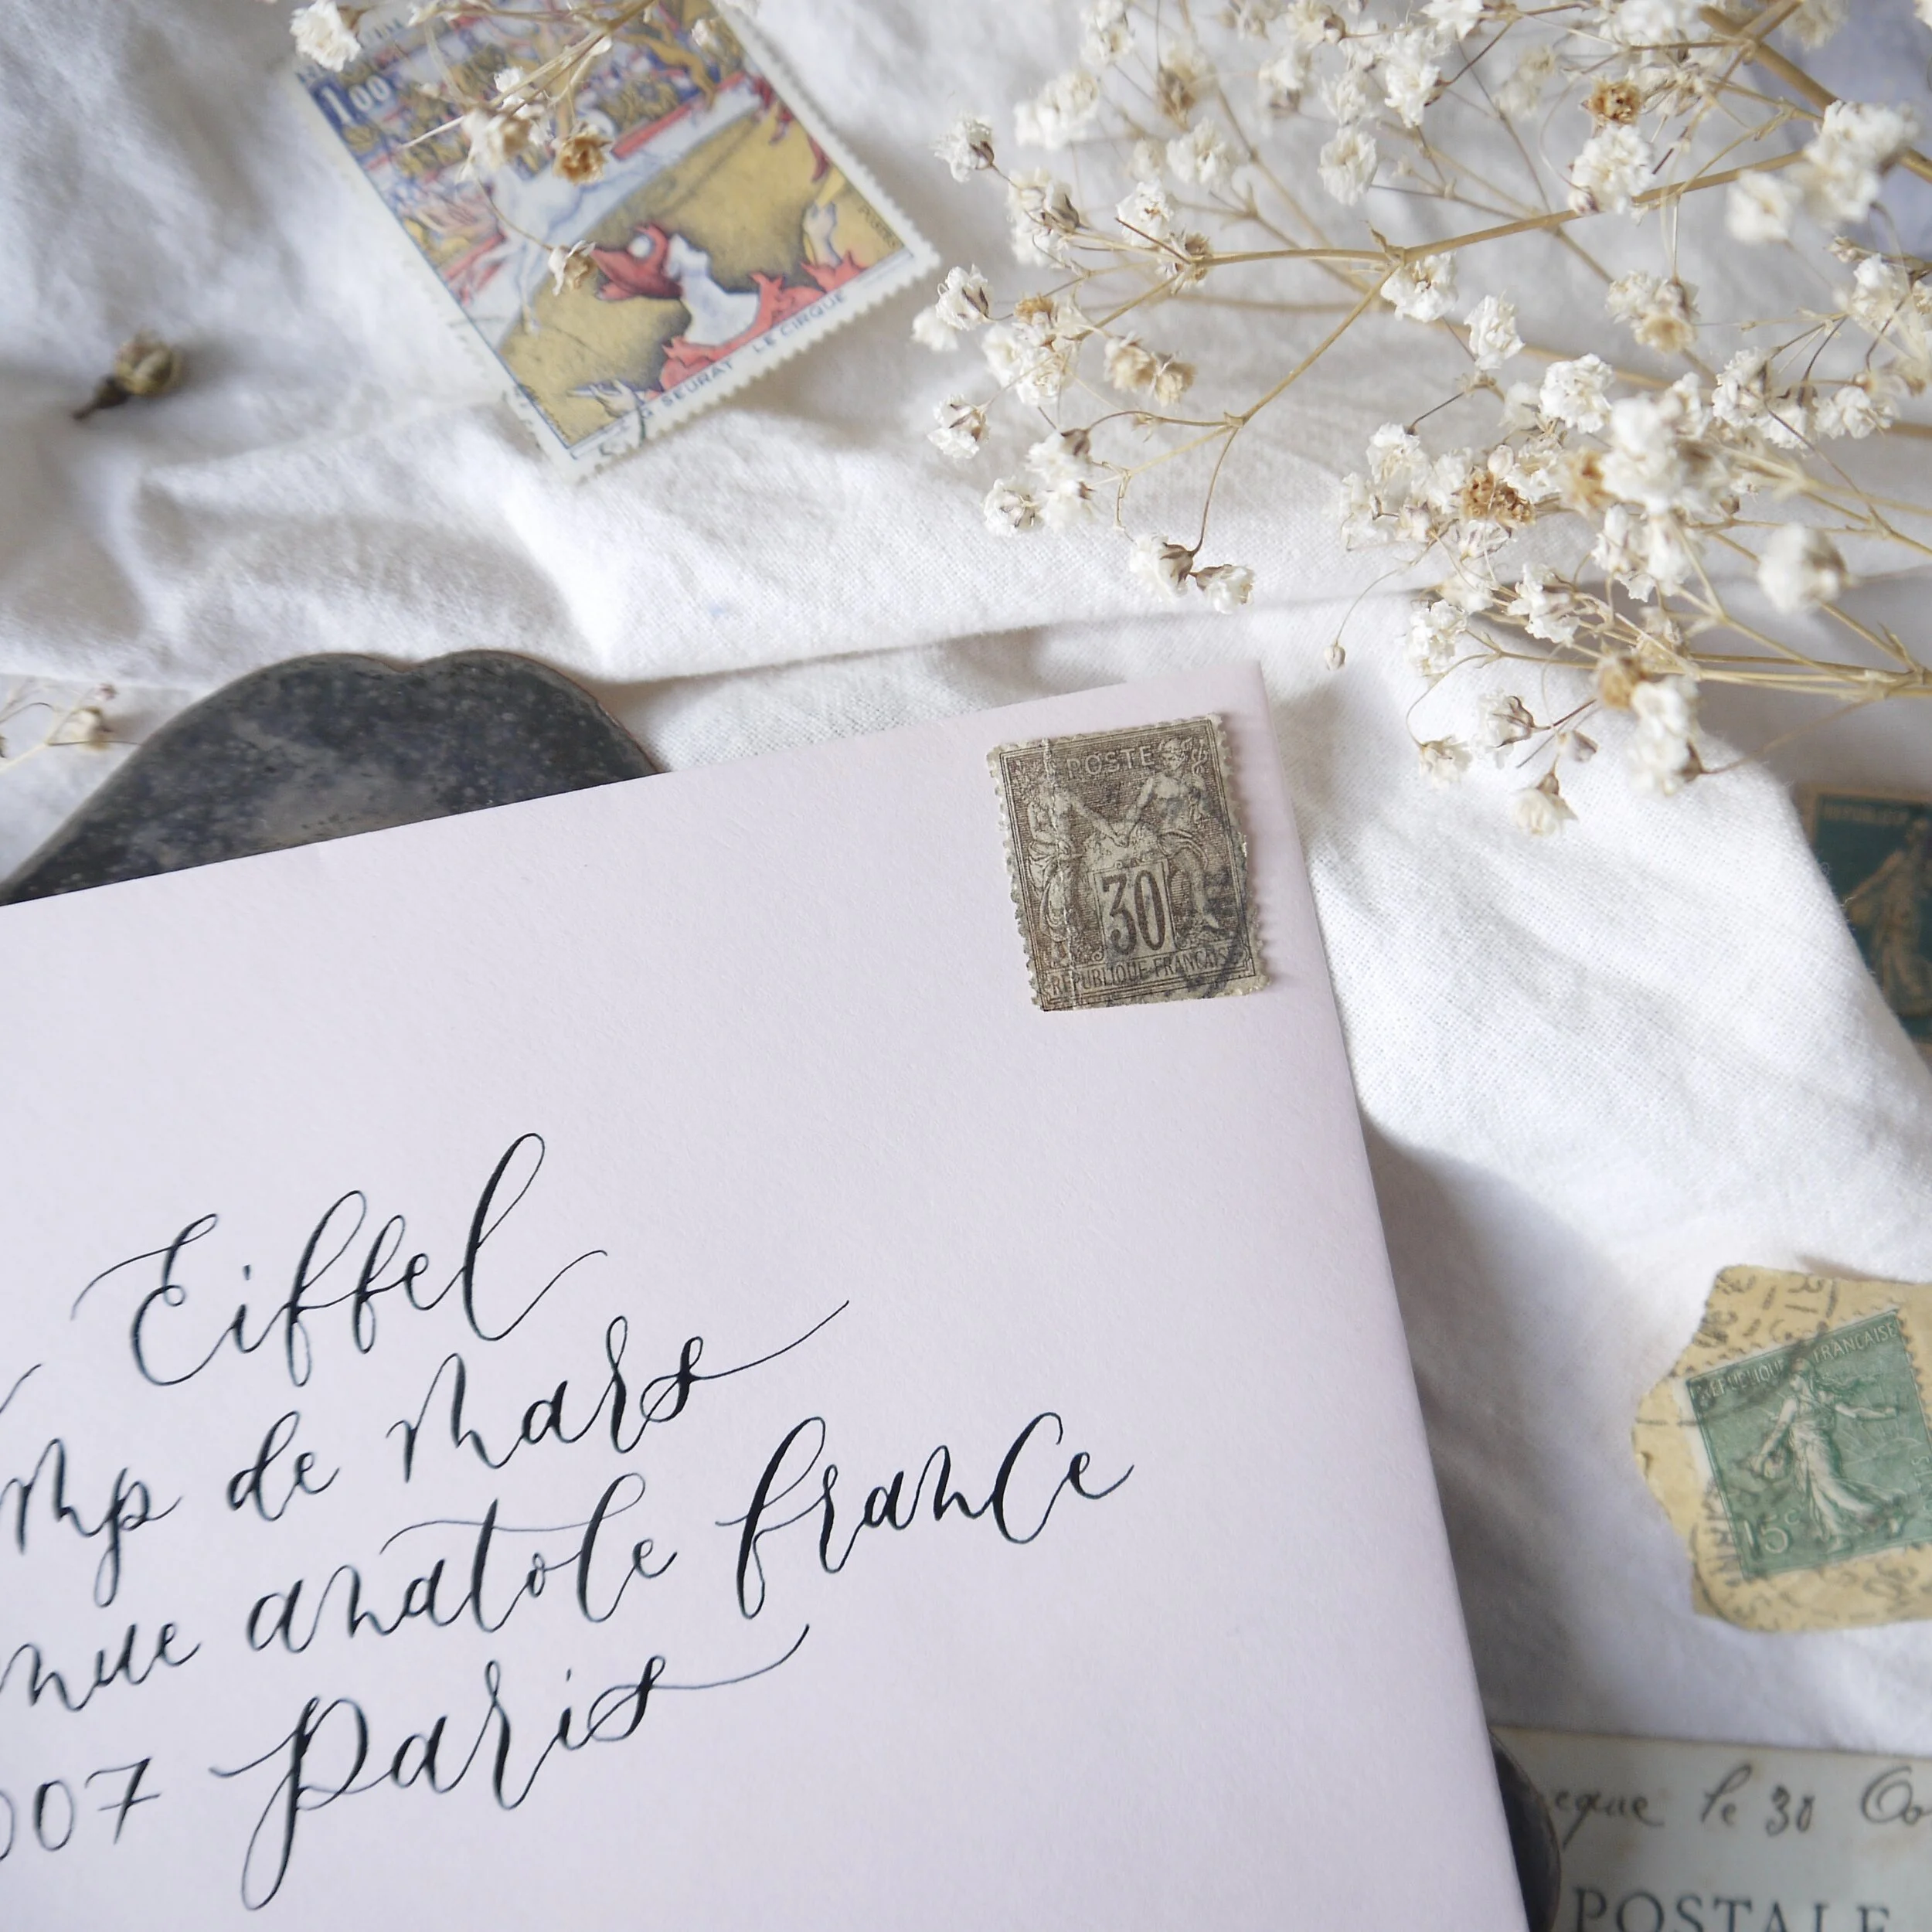 1,00
G SEURAT LE CIRQUE
POSTE
30
REPUBLIQUE FRANÇAISE
Eiffel
mp de mars
nue anatole france
007 Paris
REPUBLIQUE FRANÇAISE
15c
eque le 30
POSTALE